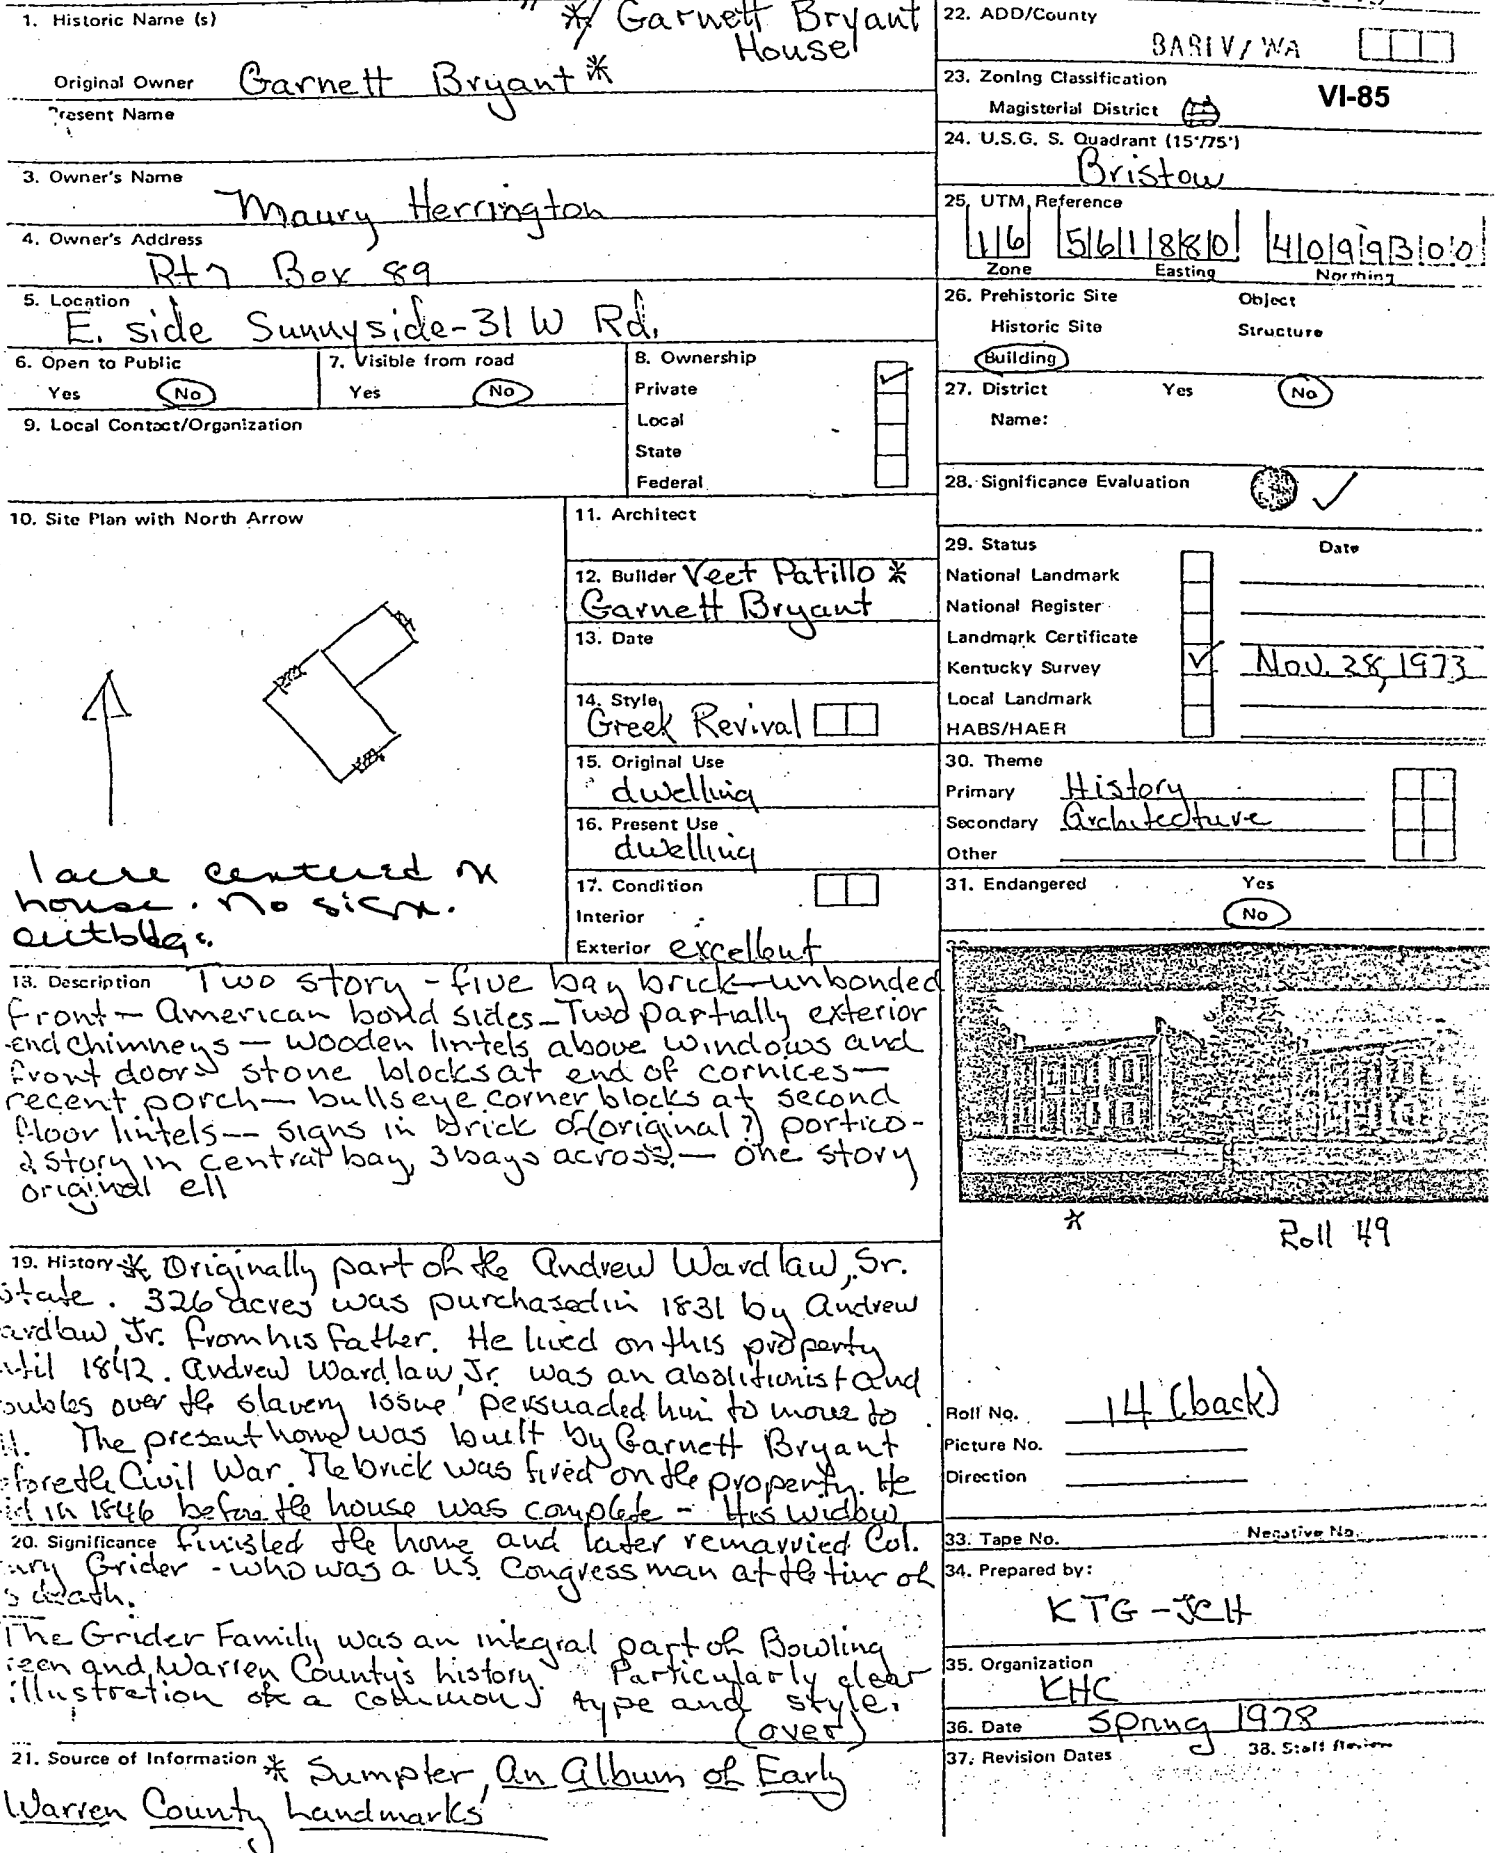 1. Historic Name (s)
* Garnett Bryant
House
Original Owner Garnett Bryant *
Present Name
3. Owner's Name
Maury Herrington
4. Owner's Address
Rt 7 Box 89
5. Location
E. side Sunnyside-31 W Rd.
6. Open to Public
Yes No
7. Visible from road
Yes No
8. Ownership
Private ✓
Local
State
Federal
9. Local Contact/Organization
10. Site Plan with North Arrow
1 acre centered on
house. No sign.
outbldgs.
11. Architect
12. Builder Veet Patillo *
Garnett Bryant
13. Date
14. Style
Greek Revival
15. Original Use
dwelling
16. Present Use
dwelling
17. Condition
Interior
Exterior excellent
18. Description Two story - five bay brick - unbonded
front - American bond sides - Two partially exterior
end chimneys - wooden lintels above windows and
front door - stone blocks at end of cornices -
recent porch - bullseye corner blocks at second
floor lintels -- signs in brick of (original?) portico -
2 story in central bay, 3 bays across. - one story
original ell
19. History * Originally part of the Andrew Wardlaw, Sr.
state. 326 acres was purchased in 1831 by Andrew
ardlaw, Jr. from his father. He lived on this property
ntil 1842. Andrew Wardlaw, Jr. was an abolitionist and
oubles over the slavery issue persuaded him to move to
ll. The present home was built by Garnett Bryant
efore the Civil War. The brick was fired on the property. He
ied in 1846 before the house was complete - His widow
20. Significance finished the home and later remarried Col.
nry Grider - who was a U.S. Congressman at the time of
s death.
The Grider Family was an integral part of Bowling
reen and Warren County's history. Particularly clear
illustration of a common type and style.
(over)
21. Source of Information * Sumpter, An Album of Early
Warren County Landmarks
22. ADD/County
WA
23. Zoning Classification
VI-85
Magisterial District
24. U.S.G. S. Quadrant (15'/75')
Bristow
25. UTM Reference
16 561880 4099300
Zone Easting Northing
26. Prehistoric Site Object
Historic Site Structure
Building
27. District Yes No
Name:
28. Significance Evaluation ✓
29. Status Date
National Landmark
National Register
Landmark Certificate
Kentucky Survey ✓ Nov. 28, 1973
Local Landmark
HABS/HAER
30. Theme
Primary History
Secondary Architecture
Other
31. Endangered Yes
No
* Roll 49
Roll No. 14 (back)
Picture No.
Direction
33. Tape No. Negative No.
34. Prepared by:
KTG - JCH
35. Organization
KHC
36. Date Spring 1978
37. Revision Dates 38. Staff Review